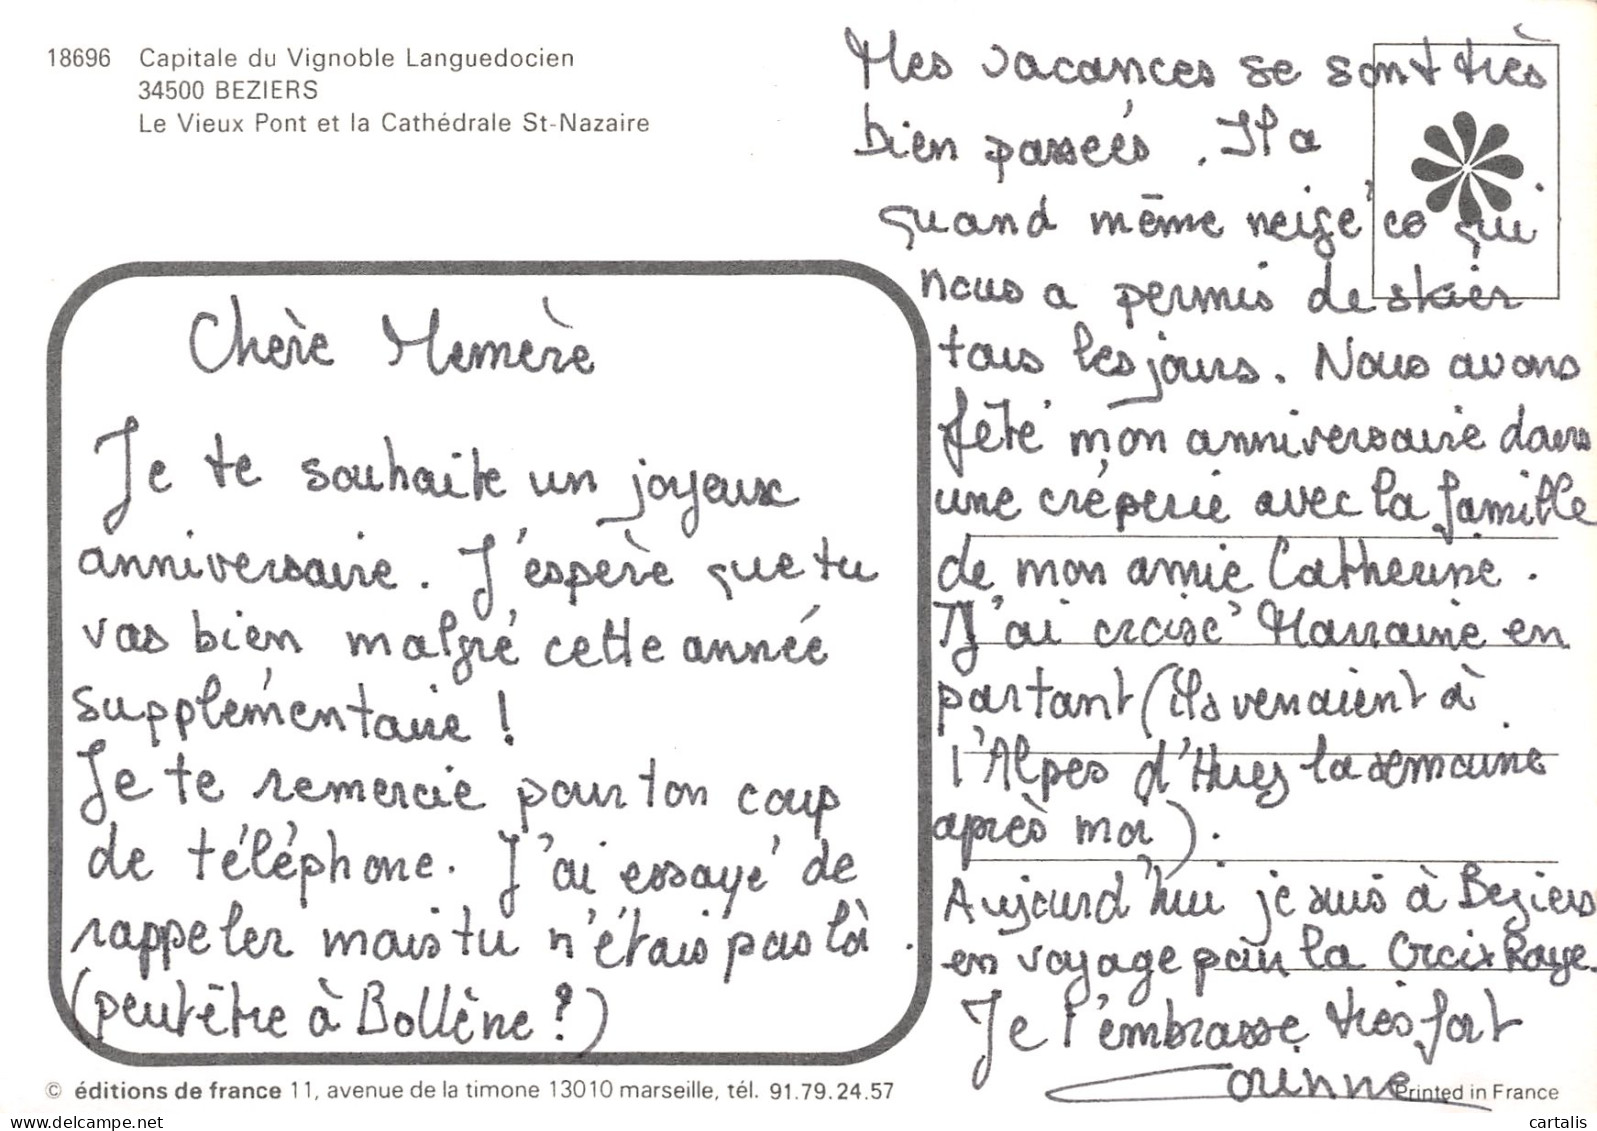 18696 Capitale du Vignoble Languedocien
34500 BEZIERS
Le Vieux Pont et la Cathédrale St-Nazaire
Chère Memère
Je te souhaite un joyeux
anniversaire. J'espère que tu
vas bien malgré cette année
supplémentaire !
Je te remercie pour ton coup
de téléphone. J'ai essayé de
rappeler mais tu n'étais pas là.
(peut être à Bollène ?)
Mes vacances se sont très
bien passées. Il a
quand même neigé ce qui
nous a permis de skier
tous les jours. Nous avons
fêté mon anniversaire dans
une crêperie avec la famille
de mon amie Catherine.
J'ai croisé Marraine en
partant (ils venaient à
l'Alpes d'Huez la semaine
après moi).
Aujourd'hui je suis à Beziers
en voyage pour la Croix Rouge.
Je t'embrasse très fort
Corinne
© éditions de france 11, avenue de la timone 13010 marseille, tél. 91.79.24.57
Printed in France
cartalis